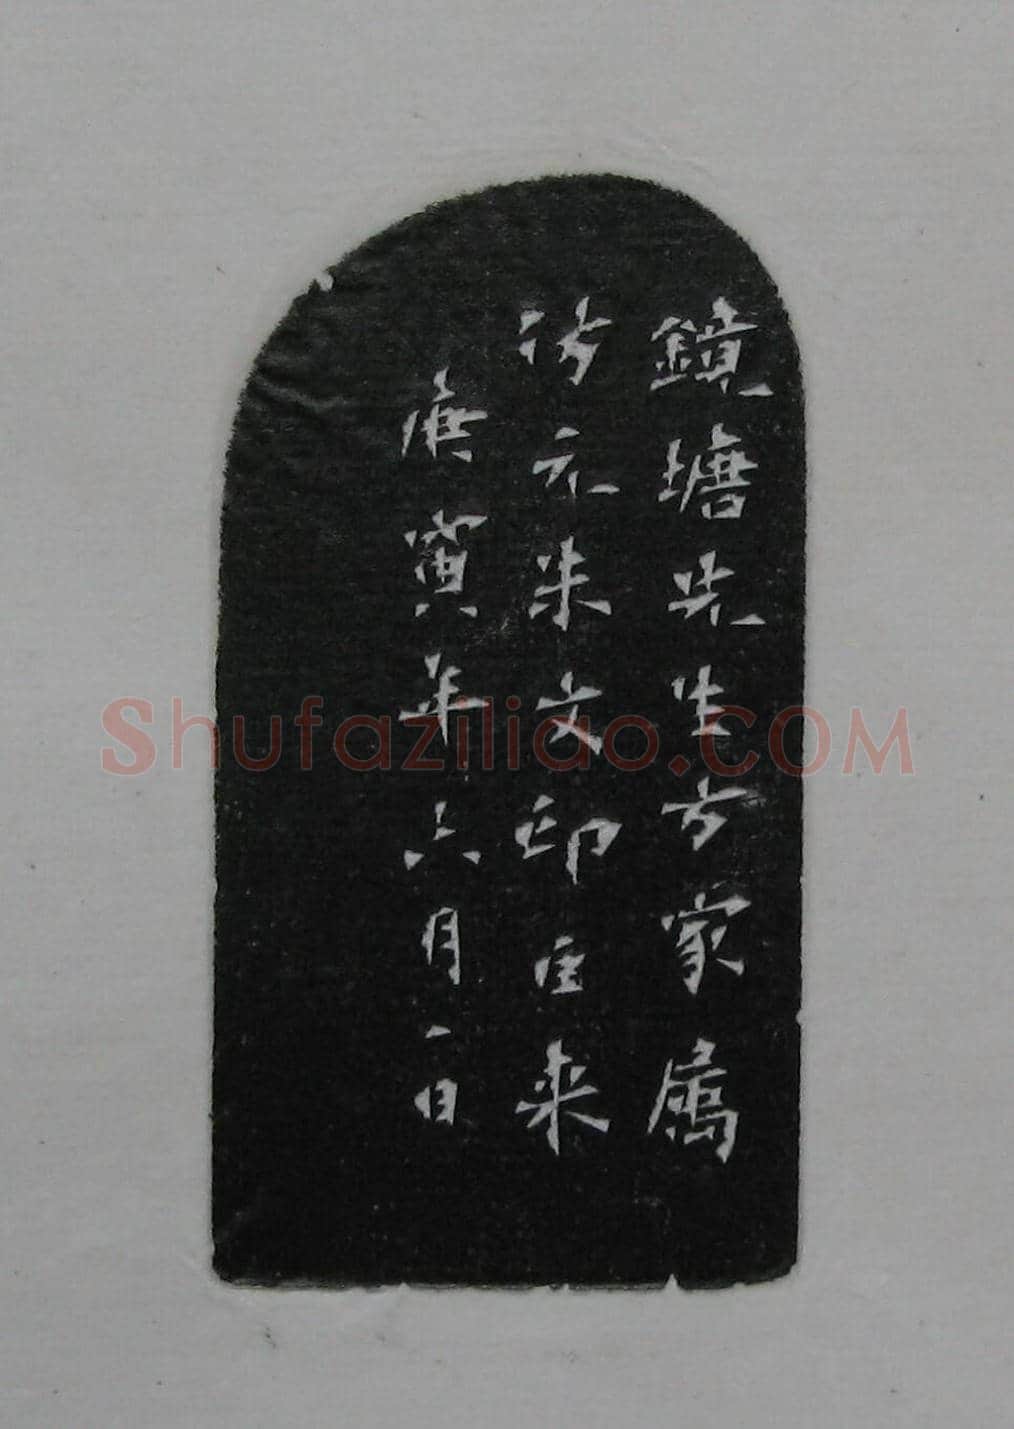 鏡塘先生方家属
仿元朱文印巨来
庚寅年六月一日
Shufaziliao.COM